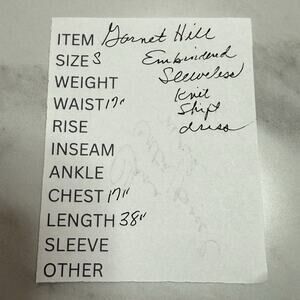 ITEM Garnet Hill
SIZE S Embroidered
WEIGHT Sleeveless
WAIST 17" Knit
RISE Shift
INSEAM dress
ANKLE
CHEST 17"
LENGTH 38"
SLEEVE
OTHER